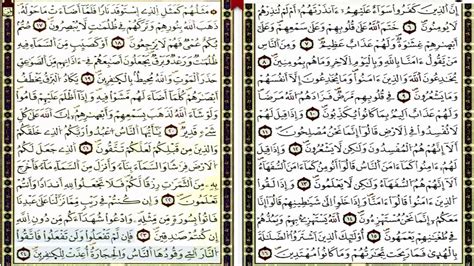 إِنَّ الَّذِينَ كَفَرُوا سَوَاءٌ عَلَيْهِمْ ءَأَنذَرْتَهُمْ أَمْ لَمْ تُنذِرْهُمْ
لَا يُؤْمِنُونَ ٦ خَتَمَ اللَّهُ عَلَىٰ قُلُوبِهِمْ وَعَلَىٰ سَمْعِهِمْ وَعَلَىٰ
أَبْصَٰرِهِمْ غِشَٰوَةٌ وَلَهُمْ عَذَابٌ عَظِيمٌ ٧ وَمِنَ النَّاسِ مَن يَقُولُ
ءَامَنَّا بِاللَّهِ وَبِالْيَوْمِ الْءَاخِرِ وَمَا هُم بِمُؤْمِنِينَ ٨
يُخَٰدِعُونَ اللَّهَ وَالَّذِينَ ءَامَنُوا وَمَا يَخْدَعُونَ إِلَّا أَنفُسَهُمْ
وَمَا يَشْعُرُونَ ٩ فِي قُلُوبِهِم مَّرَضٌ فَزَادَهُمُ اللَّهُ مَرَضًا
وَلَهُمْ عَذَابٌ أَلِيمٌ بِمَا كَانُوا يَكْذِبُونَ ١٠ وَإِذَا قِيلَ لَهُمْ
لَا تُفْسِدُوا فِي الْأَرْضِ قَالُوا إِنَّمَا نَحْنُ مُصْلِحُونَ ١١
أَلَا إِنَّهُمْ هُمُ الْمُفْسِدُونَ وَلَٰكِن لَّا يَشْعُرُونَ ١٢ وَإِذَا قِيلَ
لَهُمْ ءَامِنُوا كَمَا ءَامَنَ النَّاسُ قَالُوا أَنُؤْمِنُ كَمَا ءَامَنَ السُّفَهَاءُ
أَلَا إِنَّهُمْ هُمُ السُّفَهَاءُ وَلَٰكِن لَّا يَعْلَمُونَ ١٣ وَإِذَا لَقُوا
الَّذِينَ ءَامَنُوا قَالُوا ءَامَنَّا وَإِذَا خَلَوْا إِلَىٰ شَيَٰطِينِهِمْ قَالُوا
إِنَّا مَعَكُمْ إِنَّمَا نَحْنُ مُسْتَهْزِءُونَ ١٤ اللَّهُ يَسْتَهْزِئُ بِهِمْ
وَيَمُدُّهُمْ فِي طُغْيَٰنِهِمْ يَعْمَهُونَ ١٥ أُولَٰئِكَ الَّذِينَ اشْتَرَوُا
الضَّلَٰلَةَ بِالْهُدَىٰ فَمَا رَبِحَت تِّجَٰرَتُهُمْ وَمَا كَانُوا مُهْتَدِينَ ١٦
مَثَلُهُمْ كَمَثَلِ الَّذِي اسْتَوْقَدَ نَارًا فَلَمَّا أَضَاءَتْ مَا حَوْلَهُ
ذَهَبَ اللَّهُ بِنُورِهِمْ وَتَرَكَهُمْ فِي ظُلُمَٰتٍ لَّا يُبْصِرُونَ ١٧ صُمٌّ
بُكْمٌ عُمْيٌ فَهُمْ لَا يَرْجِعُونَ ١٨ أَوْ كَصَيِّبٍ مِّنَ السَّمَاءِ فِيهِ
ظُلُمَٰتٌ وَرَعْدٌ وَبَرْقٌ يَجْعَلُونَ أَصَٰبِعَهُمْ فِي ءَاذَانِهِم مِّنَ الصَّوَٰعِقِ
حَذَرَ الْمَوْتِ وَاللَّهُ مُحِيطٌ بِالْكَٰفِرِينَ ١٩ يَكَادُ الْبَرْقُ يَخْطَفُ
أَبْصَٰرَهُمْ كُلَّمَا أَضَاءَ لَهُم مَّشَوْا فِيهِ وَإِذَا أَظْلَمَ عَلَيْهِمْ قَامُوا
وَلَوْ شَاءَ اللَّهُ لَذَهَبَ بِسَمْعِهِمْ وَأَبْصَٰرِهِمْ إِنَّ اللَّهَ عَلَىٰ كُلِّ
شَيْءٍ قَدِيرٌ ٢٠ يَٰأَيُّهَا النَّاسُ اعْبُدُوا رَبَّكُمُ الَّذِي خَلَقَكُمْ
وَالَّذِينَ مِن قَبْلِكُمْ لَعَلَّكُمْ تَتَّقُونَ ٢١ الَّذِي جَعَلَ لَكُمُ
الْأَرْضَ فِرَٰشًا وَالسَّمَاءَ بِنَاءً وَأَنزَلَ مِنَ السَّمَاءِ مَاءً فَأَخْرَجَ
بِهِ مِنَ الثَّمَرَٰتِ رِزْقًا لَّكُمْ فَلَا تَجْعَلُوا لِلَّهِ أَندَادًا وَأَنتُمْ
تَعْلَمُونَ ٢٢ وَإِن كُنتُمْ فِي رَيْبٍ مِّمَّا نَزَّلْنَا عَلَىٰ عَبْدِنَا
فَأْتُوا بِسُورَةٍ مِّن مِّثْلِهِ وَادْعُوا شُهَدَاءَكُم مِّن دُونِ اللَّهِ
إِن كُنتُمْ صَٰدِقِينَ ٢٣ فَإِن لَّمْ تَفْعَلُوا وَلَن تَفْعَلُوا فَاتَّقُوا
النَّارَ الَّتِي وَقُودُهَا النَّاسُ وَالْحِجَارَةُ أُعِدَّتْ لِلْكَٰفِرِينَ ٢٤